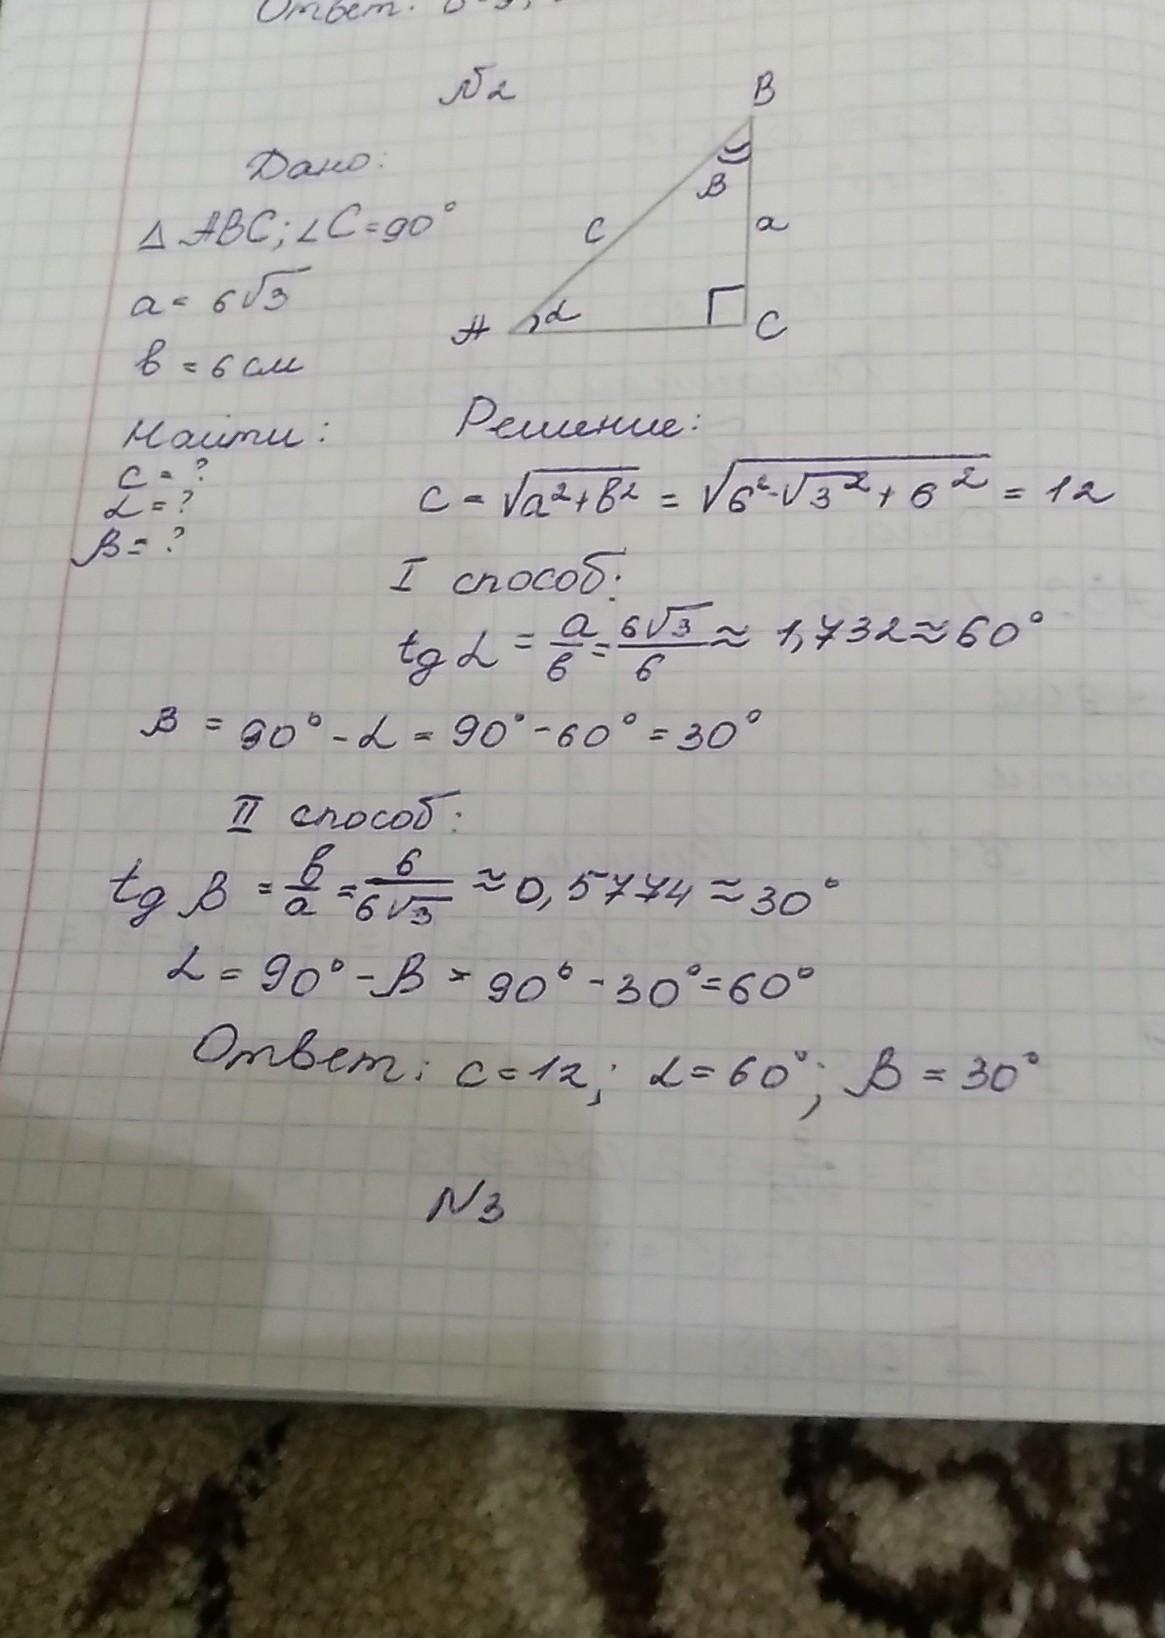 Ответ:
№2
Дано:
△ ABC; ∠C=90°
a = 6√3
в = 6 см
Найти:
c = ?
α = ?
β = ?
B
β
c
a
A
α
C
Решение:
c = √a²+в² = √6²·√3²+6² = 12
I способ:
tg α = a/в = 6√3/6 ≈ 1,732 ≈ 60°
β = 90° - α = 90° - 60° = 30°
II способ:
tg β = в/a = 6/6√3 ≈ 0,5774 ≈ 30°
α = 90° - β = 90° - 30° = 60°
Ответ: c=12; α=60°; β=30°
N3